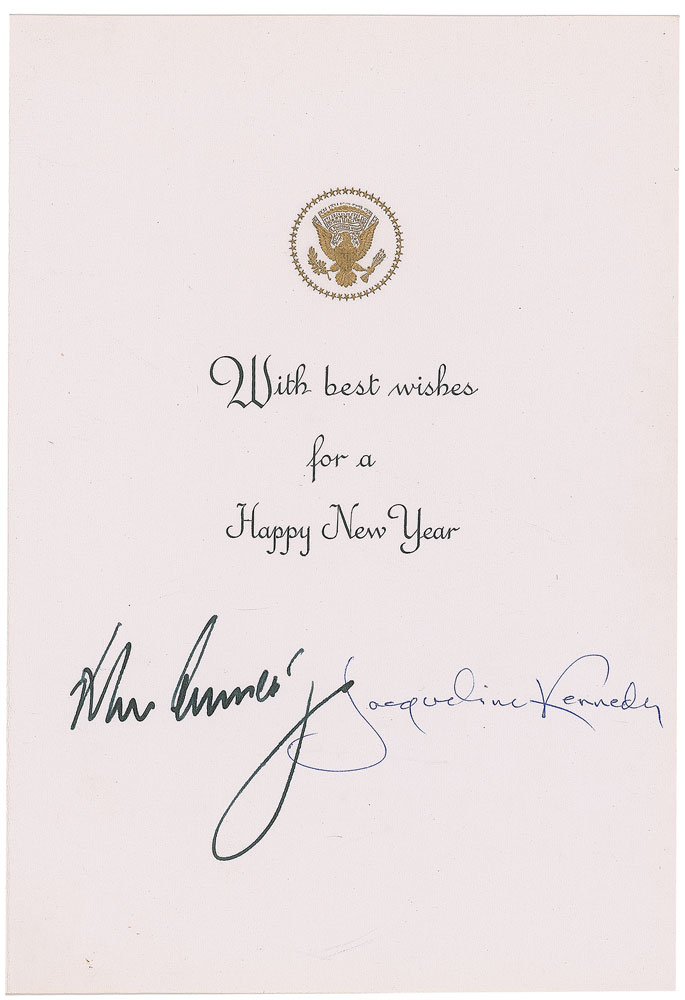 With best wishes
for a
Happy New Year
John Kennedy Jacqueline Kennedy